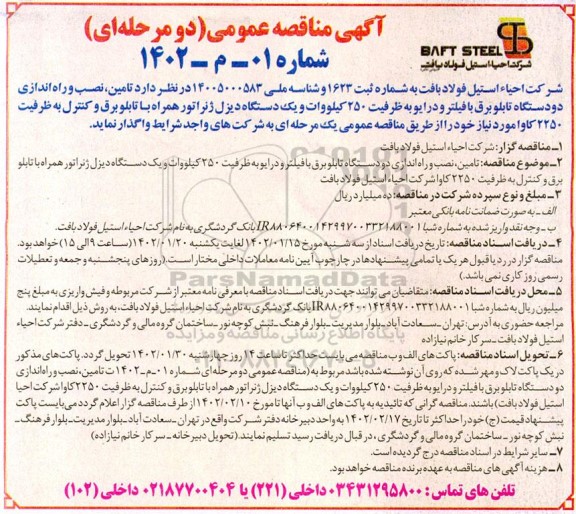 آگهی مناقصه عمومی (دو مرحله‌ای)
شماره ۰۱ـ م ـ ۱۴۰۲
BAFT STEEL
شرکت احیاء استیل فولاد بافت
شرکت احیاء استیل فولاد بافت به شماره ثبت ۱۶۲۳ و شناسه ملی ۱۴۰۰۵۰۰۰۵۸۳ در نظر دارد تامین، نصب و راه اندازی
دو دستگاه تابلو برق با فیلتر و درایو به ظرفیت ۲۵۰ کیلووات و یک دستگاه دیزل ژنراتور همراه با تابلو برق و کنترل به ظرفیت
۲۲۵۰ کاوا مورد نیاز خود را از طریق مناقصه عمومی یک مرحله ای به شرکت های واجد شرایط واگذار نماید.
۱ـ مناقصه گزار: شرکت احیاء استیل فولاد بافت
۲ـ موضوع مناقصه: تامین، نصب و راه اندازی دو دستگاه تابلو برق با فیلتر و درایو به ظرفیت ۲۵۰ کیلووات و یک دستگاه دیزل ژنراتور همراه با تابلو
برق و کنترل به ظرفیت ۲۲۵۰ کاوا شرکت احیاء استیل فولاد بافت
۳ـ مبلغ و نوع سپرده شرکت در مناقصه: ده میلیارد ریال
الف ـ به صورت ضمانت نامه بانکی معتبر
ب ـ وجه نقد واریز شده به شماره شبا IR۸۸۰۶۴۰۰۱۴۲۹۹۷۰۰۳۳۲۱۸۸۰۰۱ بانک گردشگری به نام شرکت احیاء استیل فولاد بافت.
۴ـ دریافت اسناد مناقصه: تاریخ دریافت اسناد از سه شنبه مورخ ۱۴۰۲/۰۱/۱۵ لغایت یکشنبه ۱۴۰۲/۰۱/۲۰ (ساعت ۹ الی ۱۵) خواهد بود.
مناقصه گزار در رد یا قبول هر یک یا تمامی پیشنهادها در چارچوب آیین نامه معاملات داخلی مختار است. (روزهای پنجشنبه و جمعه و تعطیلات
رسمی روز کاری نمی باشد.)
۵ـ محل دریافت اسناد مناقصه: متقاضیان می توانند جهت دریافت اسناد مناقصه با معرفی نامه معتبر از شرکت مربوطه و فیش واریزی به مبلغ پنج
میلیون ریال به شماره شبا IR۸۸۰۶۴۰۰۱۴۲۹۹۷۰۰۳۳۲۱۸۸۰۰۱ بانک گردشگری به نام شرکت احیاء استیل فولاد بافت، به روش ذیل اقدام نمایند.
مراجعه حضوری به آدرس: تهران ـ سعادت آباد ـ بلوار مدیریت ـ بلوار فرهنگ ـ نبش کوچه نور ـ ساختمان گروه مالی و گردشگری ـ دفتر شرکت احیاء
استیل فولاد بافت ـ سرکار خانم نیازاده
۶ـ تحویل اسناد مناقصه: پاکت های الف و ب مناقصه می بایست حداکثر تا ساعت ۱۴ روز چهارشنبه ۱۴۰۲/۰۱/۳۰ تحویل گردد. پاکت های مذکور
در یک پاکت لاک و مهر شده که روی آن نوشته شده باشد مربوط به (مناقصه عمومی دو مرحله ای شماره ۰۱ـ م ـ ۱۴۰۲ تامین، نصب و راه اندازی
دو دستگاه تابلو برق با فیلتر و درایو به ظرفیت ۲۵۰ کیلووات و یک دستگاه دیزل ژنراتور همراه با تابلو برق و کنترل به ظرفیت ۲۲۵۰ کاوا شرکت احیا
استیل فولاد بافت) باشند. مناقصه گرانی که تائیدیه به پاکت های الف و ب آنها تا مورخ ۱۴۰۲/۰۲/۱۰ از طرف مناقصه گزار اعلام گردد می بایست پاکت
پیشنهاد قیمت (ج) خود را حداکثر تا تاریخ ۱۴۰۲/۰۲/۱۷ به واحد دبیرخانه دفتر شرکت واقع در تهران ـ سعادت آباد ـ بلوار مدیریت ـ بلوار فرهنگ ـ
نبش کوچه نور ـ ساختمان گروه مالی و گردشگری، در قبال دریافت رسید تسلیم نمایند. (تحویل دبیرخانه ـ سرکار خانم نیازاده)
۷ـ سایر شرایط در اسناد مناقصه درج گردیده است.
۸ـ هزینه آگهی های مناقصه به عهده برنده مناقصه خواهد بود.
تلفن های تماس: ۰۳۴۳۱۲۹۵۸۰۰ داخلی (۲۲۱) یا ۰۲۱۸۷۷۰۰۴۰۴ داخلی (۱۰۲)
ParsNamadData
پایگاه اطلاع رسانی مناقصه و مزایده